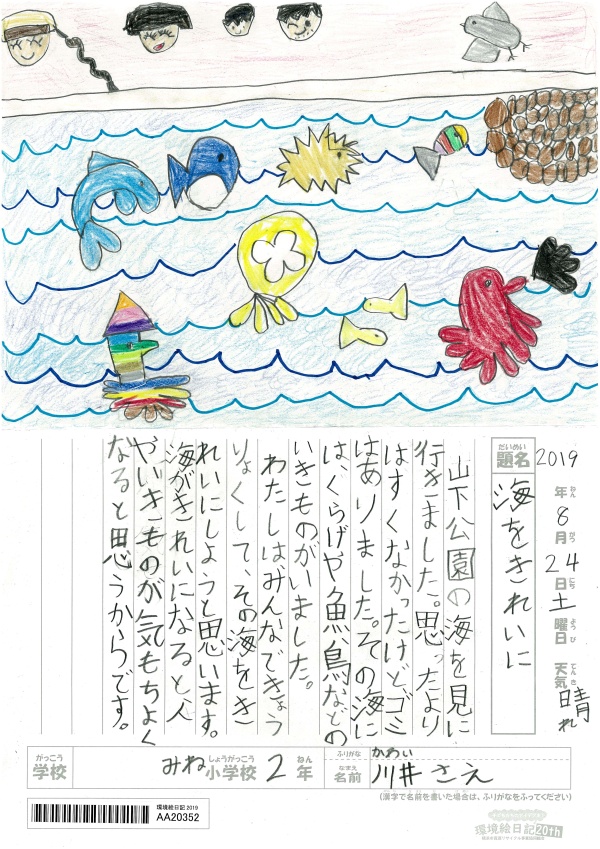 2019年8月24日土曜日 天気晴れ
ねん がつ にち ようび てんき
だいめい
題名
海をきれいに
山下公園の海を見に
行きました。思ったより
はすくなかったけどゴミ
はありました。その海に
は、くらげや魚、鳥などの
いきものがいました。
わたしはみんなできょう
りょくして、その海をき
れいにしようと思います。
海がきれいになると人
やいきものが気もちよく
なると思うからです。
がっこう
学校
みね小学校2年
しょうがっこう ねん
ふりがな かわい
なまえ
名前 川井さえ
(漢字で名前を書いた場合は、ふりがなをふってください)
環境絵日記 2019
AA20352
環境絵日記20th